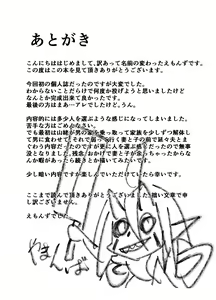 あとがき
こんにちははじめまして、訳あって名前の変わったえもんずです。
この度はこの本を見て頂きありがとうございます。
今回初の個人誌だったのですが大変でした。
わからないことだらけで何度か投げようと思いましたけど
なんとか完成出来て良かったです。
最後の方はまあ…アレでしたけど。うん。
内容的には多少人を選ぶような感じになってしまいました。
苦手な方はごめんなさい。
でも最初は山姥が男の
を乗っ取って家族を少しずつ解体して
男に食わせて それで弱って行く妻と子の前で延々夫とま
ぐわう内容だったのですが更に人を選ぶ感じだったので無難な感じに
なりました。残念
おかげで妻と子が
ちゃったからな
んか暇があったら続きとか描いてみたいです。
少し暗い内容ですが楽しんでいただけていたら幸いです。
ここまで読んで頂きありがとうございました。拙い文章で申
し訳ないです。
えもんずでした
やまんば